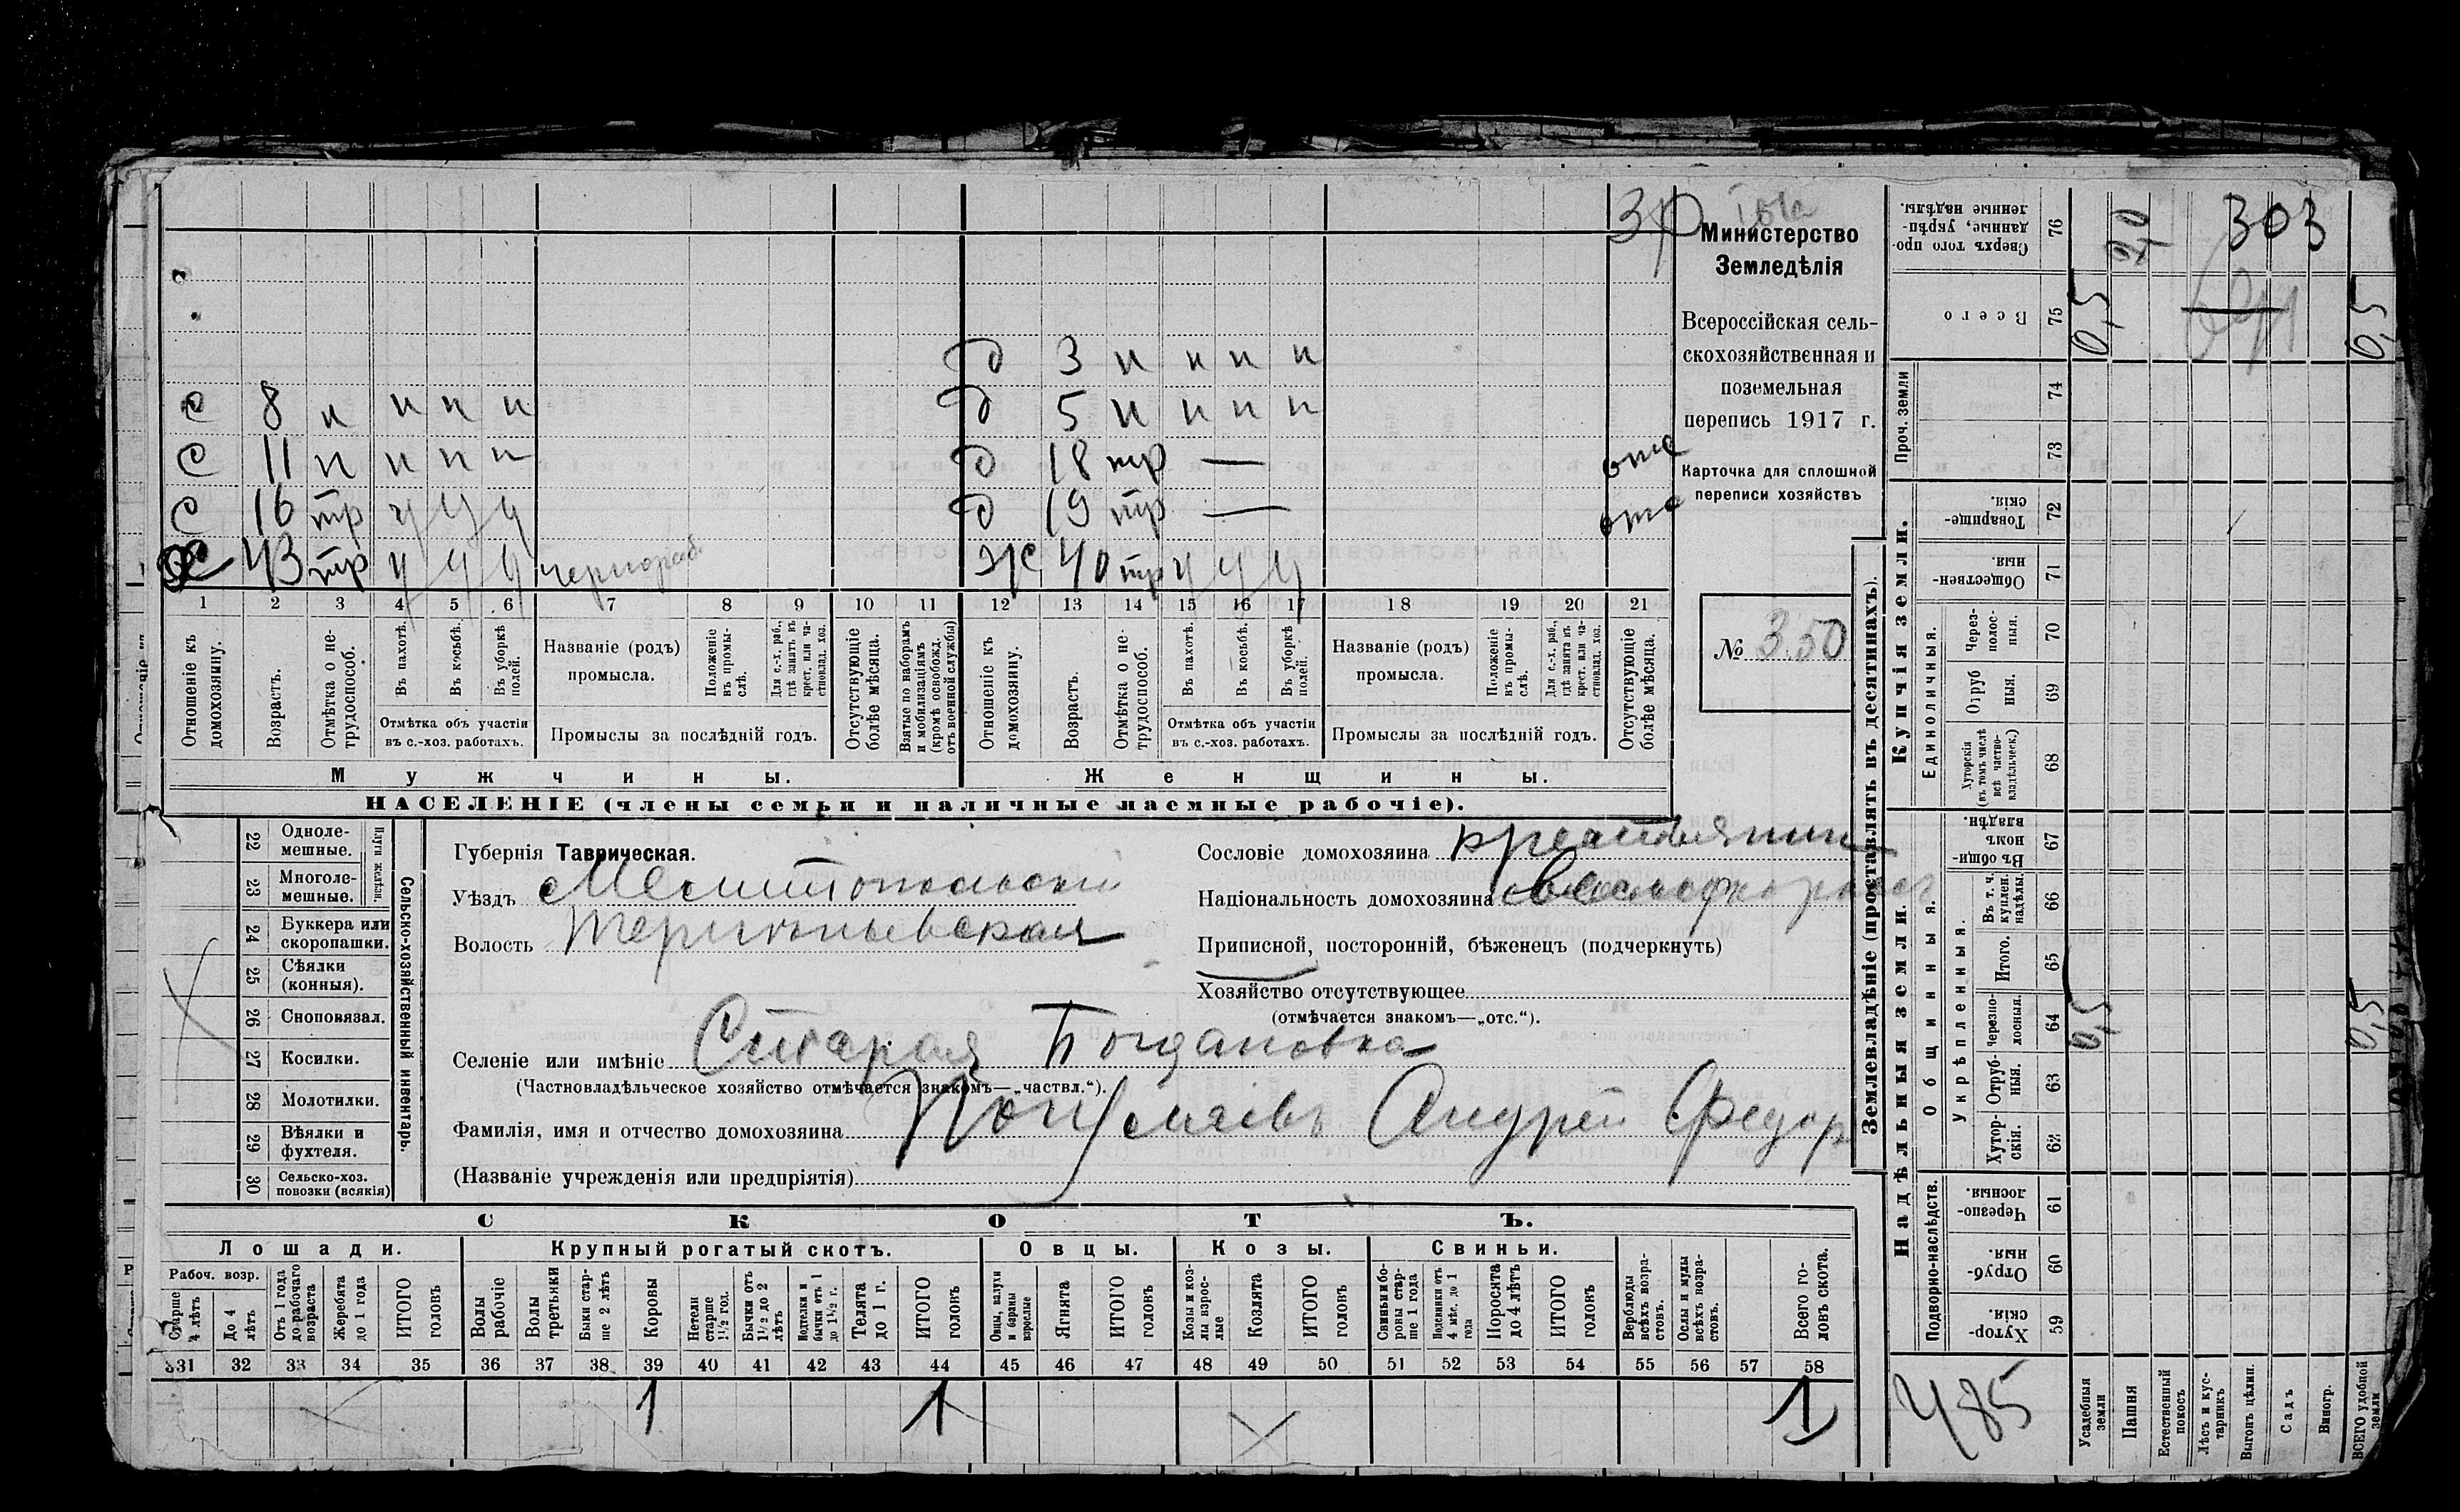 303
Министерство
Земледѣлія
Всероссійская сель-
скохозяйственная и
поземельная
перепись 1917 г.
Карточка для сплошной
переписи хозяйствъ
№ 350
д 3 н н н н
с 8 н н н н д 5 н н н н
с 11 н н н н д 18 тр — отс
с 16 тр у у у д 19 тр — отс
43 тр у у у чернораб. ж 40 тр у у у
1 2 3 4 5 6 7 8 9 10 11 12 13 14 15 16 17 18 19 20 21
Отношеніе къ домохозяину.
Возрастъ.
Отмѣтка о не-трудоспособ.
Въ пахотѣ.
Въ косьбѣ.
Въ уборкѣ полей.
Отмѣтка объ участіи
въ с.-хоз. работахъ.
Названіе (родъ)
промысла.
Положеніе въ промы-слѣ.
Для с.-х. раб., гдѣ занятъ въ крест. или ча-стновлад. хоз.
Промыслы за послѣдній годъ.
Отсутствующіе болѣе мѣсяца.
Взятые по наборамъ и мобилизаціямъ (кромѣ освобожд. отъ военной службы)
Отношеніе къ домохозяину.
Возрастъ.
Отмѣтка о не-трудоспособ.
Въ пахотѣ.
Въ косьбѣ.
Въ уборкѣ полей.
Отмѣтка объ участіи
въ с.-хоз. работахъ.
Названіе (родъ)
промысла.
Положеніе въ промы-слѣ.
Для с.-х. раб., гдѣ занята въ крест. или ча-стновлад. хоз.
Промыслы за послѣдній годъ.
Отсутствующіе болѣе мѣсяца.
Мужчины. Женщины.
НАСЕЛЕНІЕ (члены семьи и наличные наемные рабочіе).
22 Одноле-мешные.
23 Многоле-мешные.
Плуги желѣзн.
24 Буккера или скоропашки.
25 Сѣялки (конныя).
26 Сноповязал.
27 Косилки.
28 Молотилки.
29 Вѣялки и фухтеля.
30 Сельско-хоз. повозки (всякія)
Сельско-хозяйственный инвентарь.
Губернія Таврическая.
Уѣздъ Мелитопольскій
Волость Терпеньевская
Селеніе или имѣніе Старая Богдановка
(Частновладѣльческое хозяйство отмѣчается знакомъ—„частвл.“).
Фамилія, имя и отчество домохозяина Андрей Федор
(Названіе учрежденія или предпріятія)
Сословіе домохозяина крестьянин
Національность домохозяина
Приписной, посторонній, бѣженецъ (подчеркнуть)
Хозяйство отсутствующее
(отмѣчается знакомъ—„отс.“).
СКОТЪ.
Лошади. Крупный рогатый скотъ. Овцы. Козы. Свиньи.
Рабоч. возр.
Старше 4 лѣтъ
До 4 лѣтъ
Отъ 1 года до рабочаго возраста
Жеребята до 1 года
ИТОГО головъ
Волы рабочіе
Волы третьяки
Быки стар-ше 2 лѣтъ
Коровы
Нетели старше 1½ год.
Бычки отъ 1½ до 2 лѣтъ.
Подтелки и бычки отъ 1 до 1½ г.
Телята до 1 г.
ИТОГО головъ
Овцы, валухи и бараны взрослые
Ягнята
ИТОГО головъ
Козы и коз-лы взрос-лые
Козлята
ИТОГО головъ
Свиньи и бо-ровы стар-ше 1 года
Подсвинки отъ 4 мѣс. до 1 года
Поросята до 4 лѣтъ
ИТОГО головъ
Верблюды всѣхъ возра-стовъ.
Ослы и мулы всѣхъ возра-стовъ.
Всего го-ловъ скота.
31 32 33 34 35 36 37 38 39 40 41 42 43 44 45 46 47 48 49 50 51 52 53 54 55 56 57 58
1 1 1
Землевладѣніе (проставлять въ десятинахъ).
Купчія земли.
Надѣльныя земли.
Проч. земли
Единоличныя.
Общинныя.
Укрѣпленныя.
Подворно-наслѣдств.
76 Сверхъ того про-данные, укрѣп-ленные надѣлы.
75 Всего 0,5 0,5
74
73
72 Товарище-скія.
71 Обществен-ныя
70 Через-полос-ныя.
69 Отруб ныя.
68 Хуторскія (въ томъ числѣ всѣ частно-владѣльческ.)
67 Въ общин-номъ владѣн.
66 Въ т. ч. куплен. надѣлы.
65 Итого.
64 черезпо-лосныя. 0,5 0,5
63 Отруб-ныя.
62 Хутор-скія.
61 Черезпо-лосныя.
60 Отруб-ныя.
59 Хутор-скія.
485
Усадебныя земли
Пашня
Естественный покосъ
Лѣсъ и кус-тарникъ
Выгонъ цѣлин.
Садъ
Виногр.
ВСЕГО удобной земли